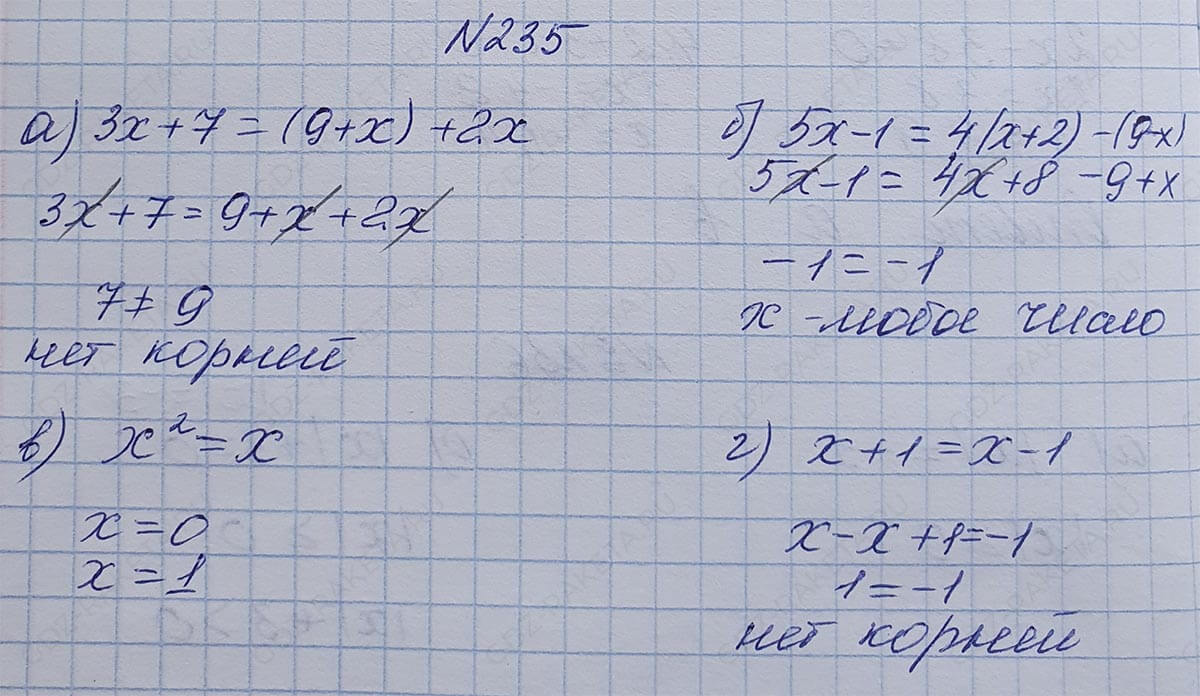 N235
а) 3x+7=(9+x)+2x
3x+7=9+x+2x
7≠9
нет корней
б) 5x-1=4(x+2)-(9-x)
5x-1=4x+8-9+x
-1=-1
x-любое число
в) x²=x
x=0
x=1
г) x+1=x-1
x-x+1=-1
1=-1
нет корней